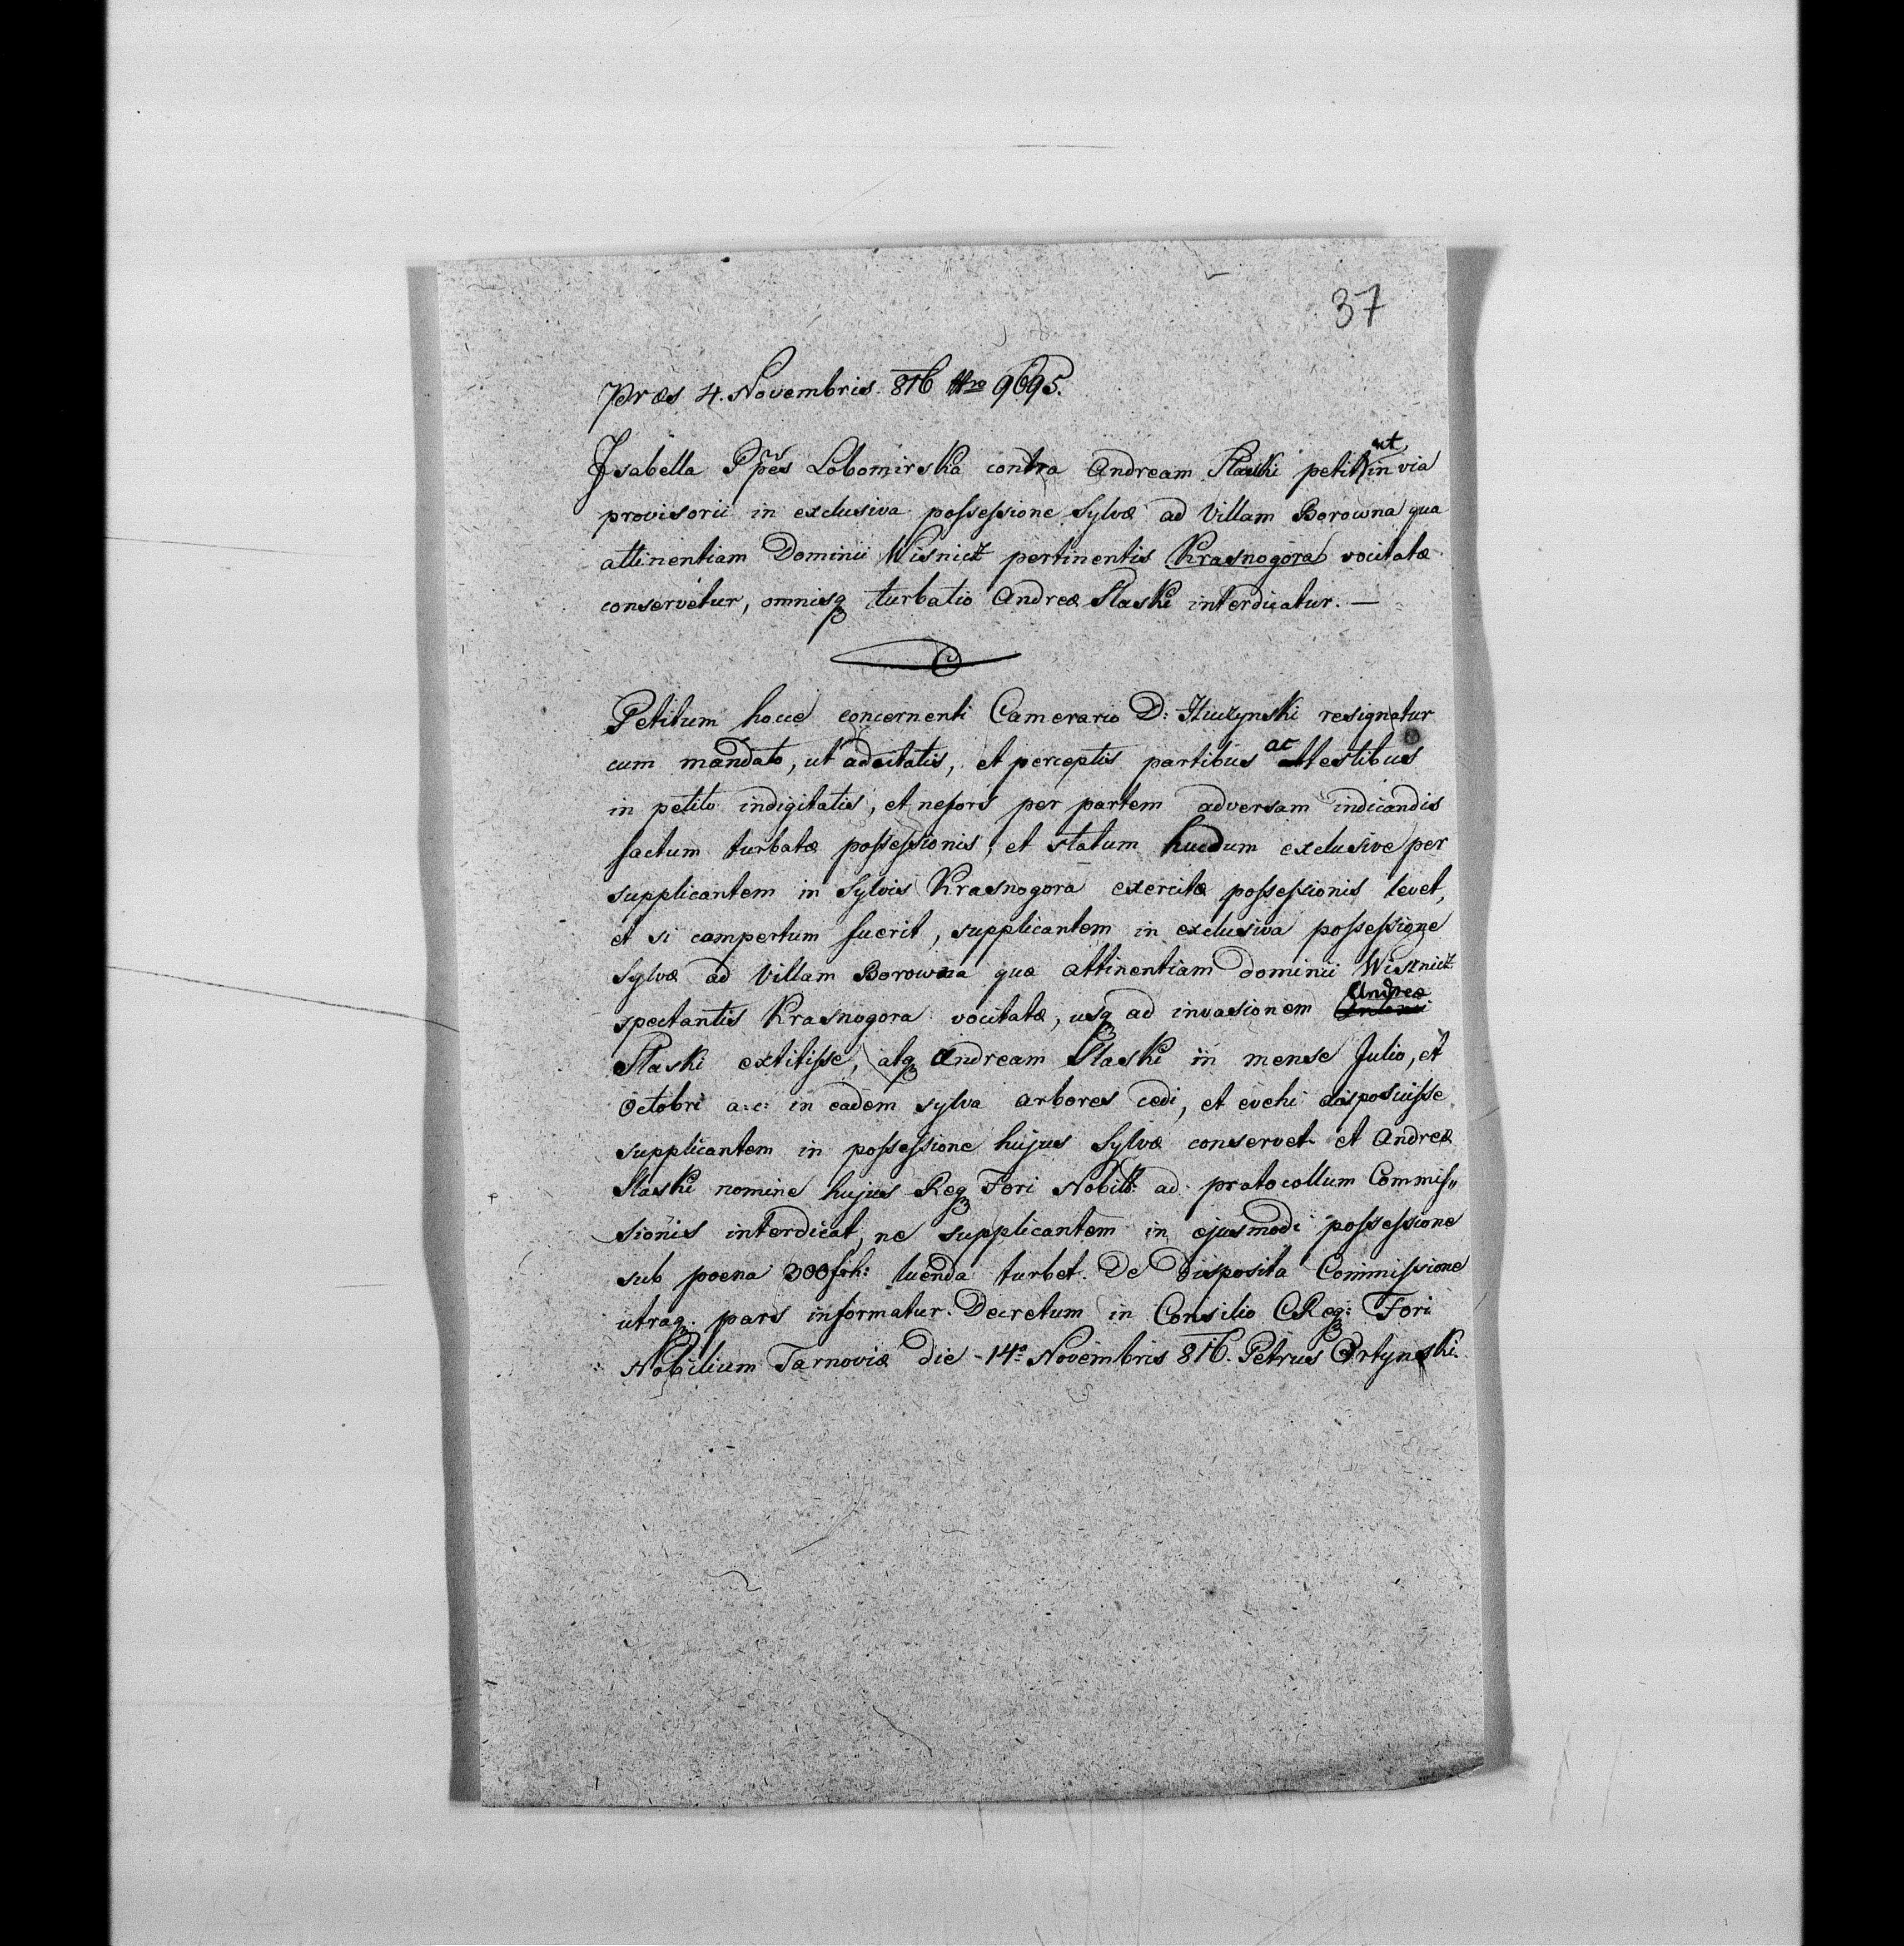 37
Præs 4. Novembris 816 Nro 9695.
Isabella Ppes Lobomirska contra Andream Slaski petit ut in via
provisorii in exclusiva possessione Sylvæ ad Villam Borowna qua
attinentiam Dominii Wisnicz pertinentis Krasnogora vocitatæ
conservetur, omnisq turbatio Andreæ Slaski interdicatur. —
Petitum hocce concernenti Camerario D: resignatur
cum mandato, ut adcitatis, et perceptis partibus ac testibus
in petito indigitatis, et nefors per partem adversam indicandis
factum turbatæ possessionis, et statum hucdum exclusive per
supplicantem in Sylvis Krasnogora exercitæ possessionis levet,
et si compertum fuerit, supplicantem in exclusiva possessione
Sylvæ ad Villam Borowna qua attinentiam dominii Wisznicz
spectantis Krasnogora vocitatæ, usq ad invasionem Andreæ
Slaski extitisse, atq Andream Slaski in mense Julio, et
Octobri a: c: in eadem sylva arbores cedi, et evehi disposuisse
supplicantem in possessione hujus Sylvæ conservet et Andreæ
Slaski nomine hujus Reg Fori Nobil: ad protocollum Commis„
sionis interdicat, ne supplicantem in ejusmodi possessione
sub poena 300 frh: luenda turbet. De disposita Commissione
utraq. pars informatur. Decretum in Consilio CReg: Fori
Nobilium Tarnoviæ die 14a Novembris 816. Petrus Ortynski.